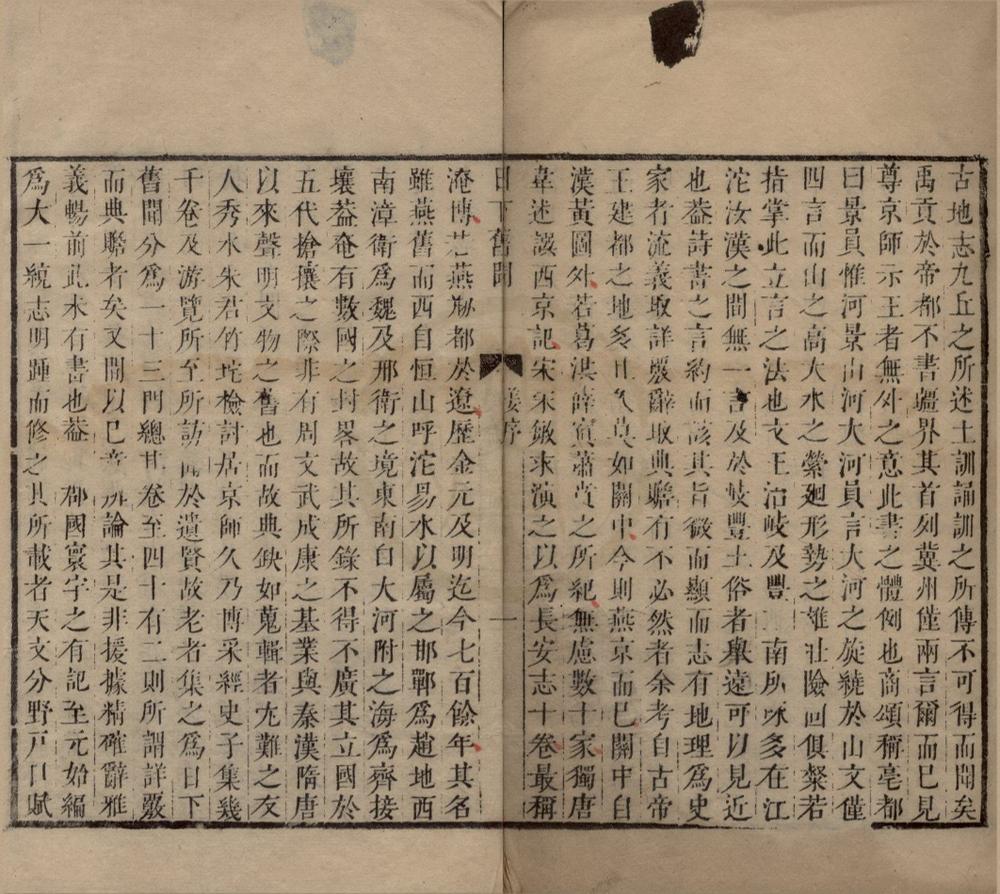 古地志九丘之所述土訓誦訓之所傳不可得而聞矣
禹貢於帝都不書疆界其首列冀州僅兩言爾而已見
尊京師示王者無外之意此書之體例也商頌稱亳都
曰景員惟河景山河大河員言大河之旋繞於山文僅
四言而山之高大水之縈廻形勢之雄壯險固俱粲若
指掌此立言之法也文王治岐及豐南所詠多在江
沱汝漢之間無一言及於岐豐土俗者舉遠可以見近
也葢詩書之言約而該其旨微而顯而志有地理為史
家者流義取詳覈辭取典贍有不必然者余考自古帝
王建都之地多且久莫如關中今則燕京而已關中自
漢黃圖外若葛洪薛寘蕭賁之所紀無慮數十家獨唐
韋述該西京記宋宋敏求演之以為長安志十卷最稱
日下舊聞 姜序 一
淹博若燕剏都於遼歷金元及明迄今七百餘年其名
雖燕舊而西自恒山呼沱易水以屬之邯鄲為趙地西
南漳衛為魏及邢衛之境東南自大河附之海為齊接
壤葢奄有數國之封畧故其所錄不得不廣其立國於
五代搶攘之際非有周文武成康之基業與秦漢隋唐
以來聲明文物之舊也而故典缺如蒐輯者尤難之友
人秀水朱君竹垞檢討居京師久乃博采經史子集幾
千卷及游覽所至所訪問於遺賢故老者集之為日下
舊聞分為一十三門總其卷至四十有二則所謂詳覈
而典贍者矣又間以已意辨論其是非援據精確辭雅
義暢前此未有書也葢郡國寰宇之有記至元始編
為大一統志明踵而修之其所載者天文分野戸口賦